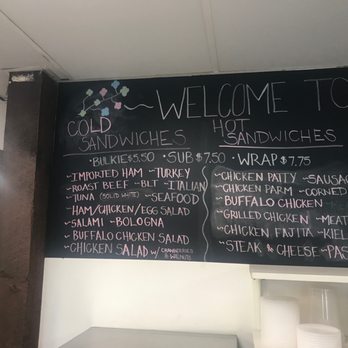 WELCOME TO
COLD SANDWICHES
HOT SANDWICHES
• BULKIE $5.50 • SUB $7.50 • WRAP $7.75
~ IMPORTED HAM ~ TURKEY
~ ROAST BEEF ~ BLT ~ ITALIAN
~ TUNA (SOLID WHITE) ~ SEAFOOD
~ HAM/CHICKEN/EGG SALAD
~ SALAMI ~ BOLOGNA
~ BUFFALO CHICKEN SALAD
~ CHICKEN SALAD w/ CRANBERRIES & WALNUTS
~ CHICKEN PATTY ~ SAUSAG
~ CHICKEN PARM ~ CORNED
~ BUFFALO CHICKEN
~ GRILLED CHICKEN ~ MEAT
~ CHICKEN FAJITA ~ KIEL
~ STEAK & CHEESE ~ PAS